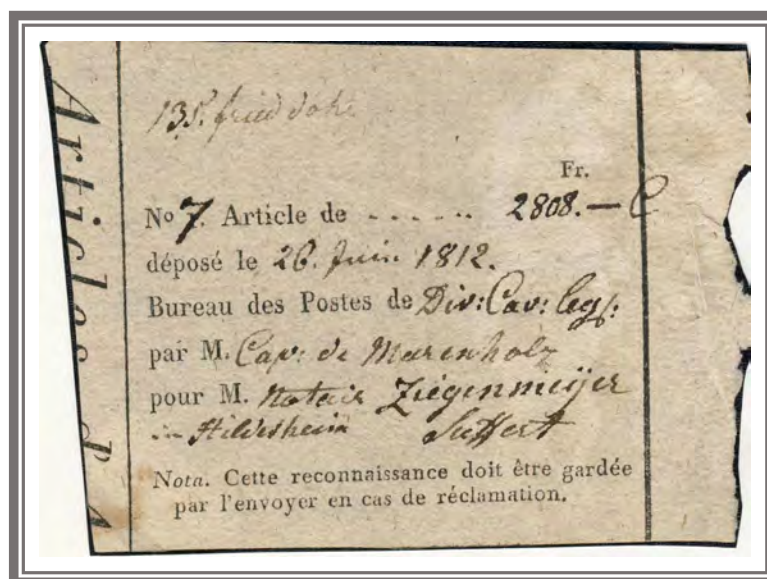 Articles d
Fr.
No 7. Article de - - - - - - 2808.— C
déposé le 26. Juin 1812.
Bureau des Postes de Div: Cav: leg:
par M. Cap: de Marenholz
pour M. Notair Ziegenmeijer
in Hildesheim Suffert
Nota. Cette reconnaissance doit être gardée
par l'envoyer en cas de réclamation.